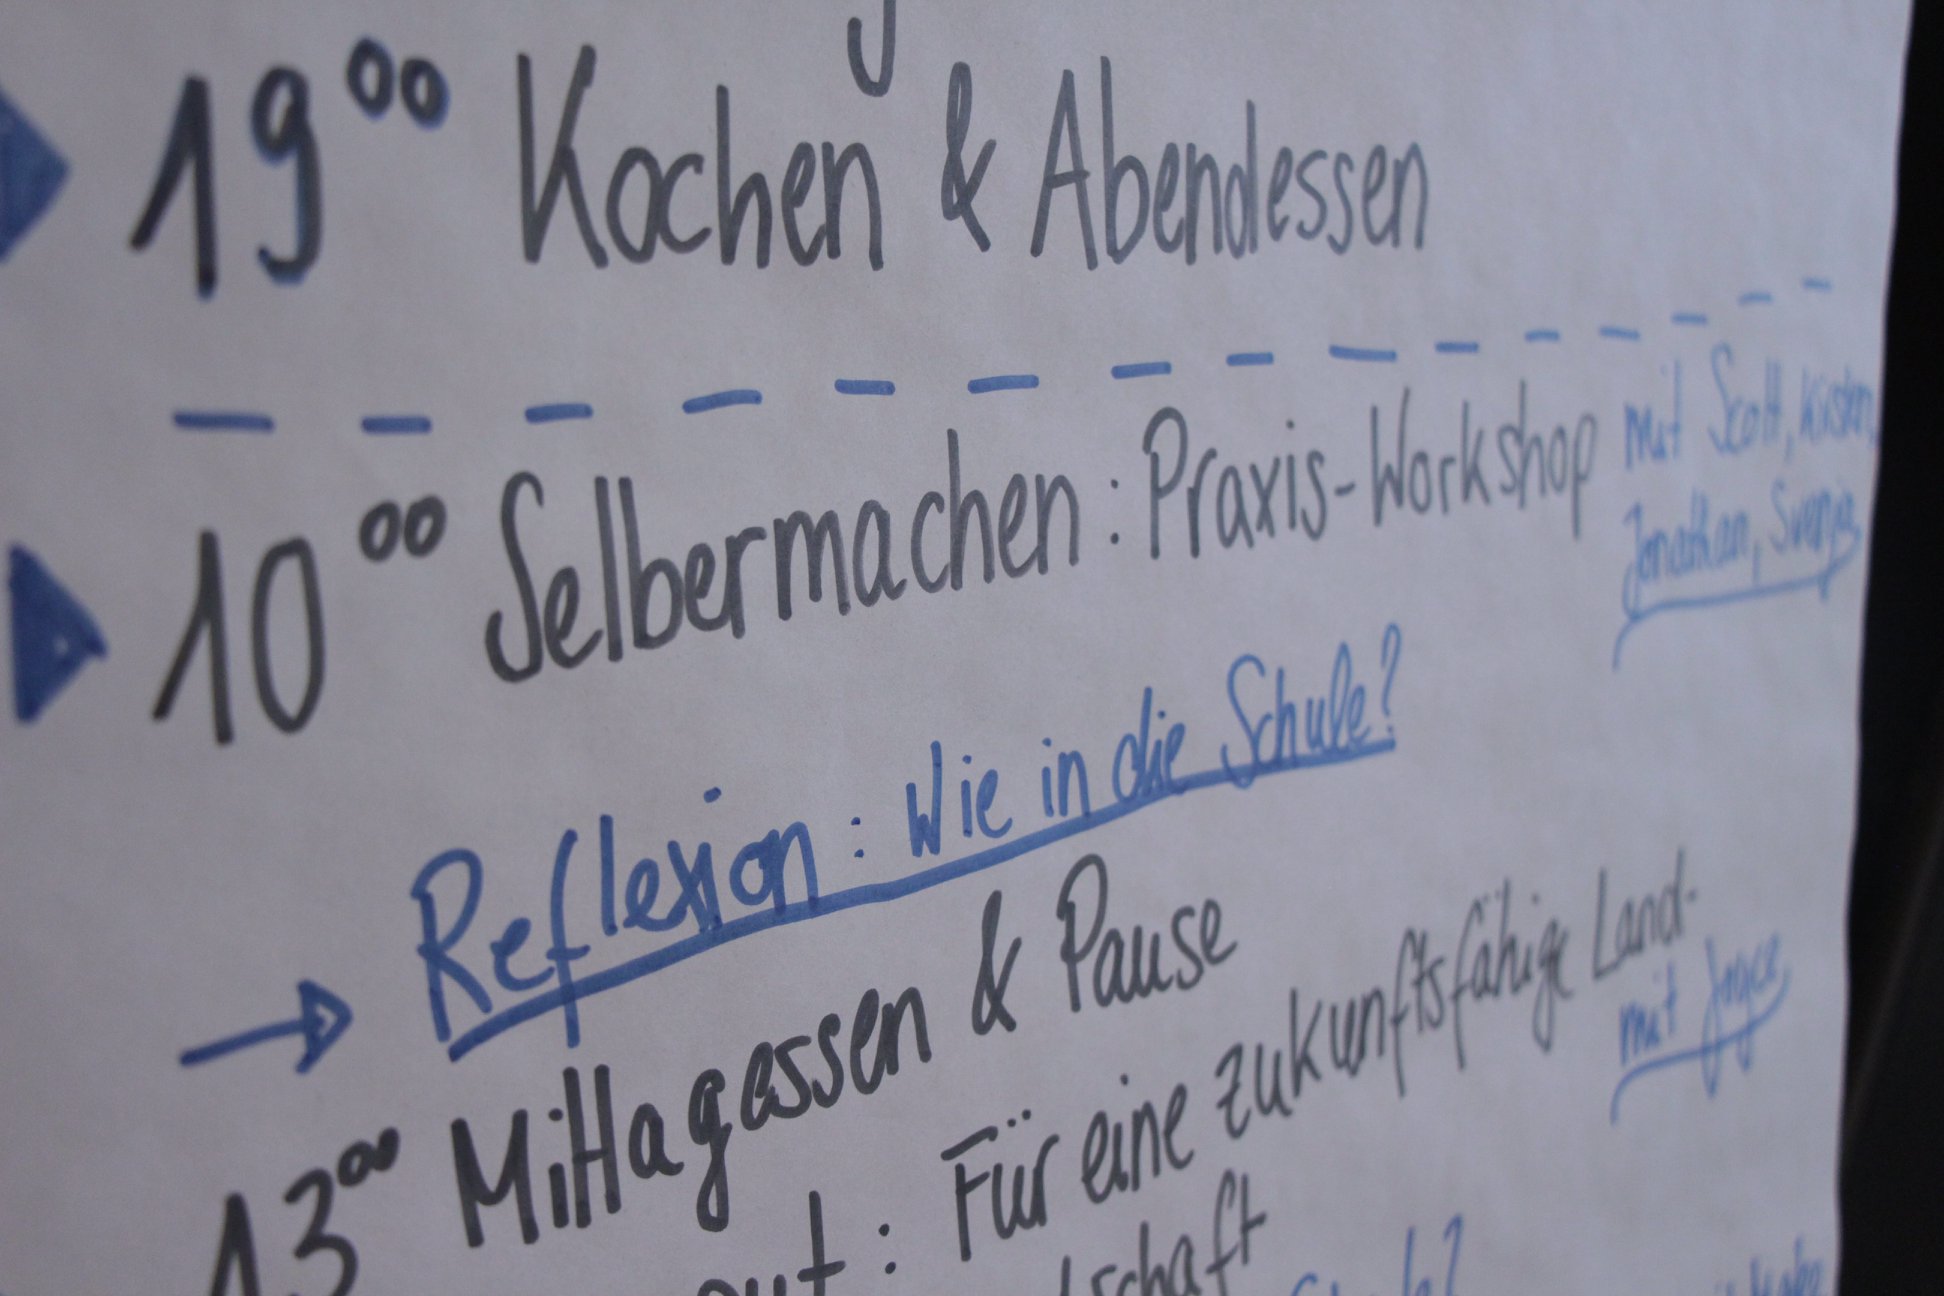 19 00 Kochen & Abendessen
10 00 Selbermachen: Praxis-Workshop
mit Scott, Kirsten,
Jonathan, Svenja
Reflexion: Wie in die Schule?
13 00 Mittagessen & Pause
: Für eine zukunftsfähige Land-
mit Joyce
schaft